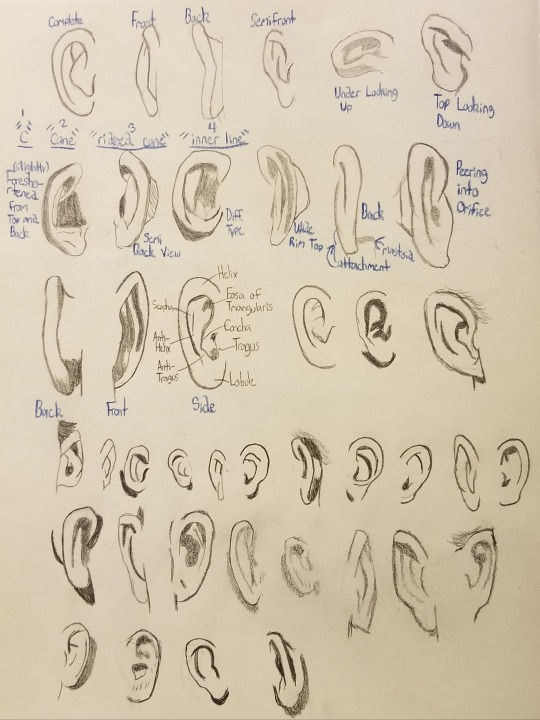 Complete
Front
Back
Semifront
Under Looking
Up
Top Looking
Down
1
"C"
2
"Cane"
3
"ridged cane"
4
"inner line"
(slightly)
Foresho-
rtened
from
Top and
Back
Semi
Back View
Diff.
Type
Wide
Rim Top
Back
attachment
mastoid
Peering
into
Orifice
Helix
Scapha
Fosa of
Triangularis
Concha
Anti-
Helix
Tragus
Anti-
Tragus
Lobule
Back
Front
Side